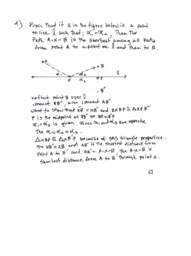 4) Prove that if X in the figure below is a point
on line l such that, α₁ = α₂, Then the
Path A-X-B is the shortest among all paths
from point A to a point on l and then to B.
A
B
α₁
X
α₂
P
l
B'
reflect point B over l
connect XB' also connect AB'
Want to show that XB = XB' and ΔXBP ≅ ΔXPB'
P is the midpoint of BB' so BP = B'P
α₁ = α₂ is given. Since α₁ and α₃ are opposite
Then α₁ = α₂ = α₃.
ΔXBP ≅ ΔXB'P because of SAS triangle properties.
So XB' = XB and AB' is the shortest distance from
point A to B' and AB' = A-X-B. The A-X-B is
shortest distance from A to B through point X.